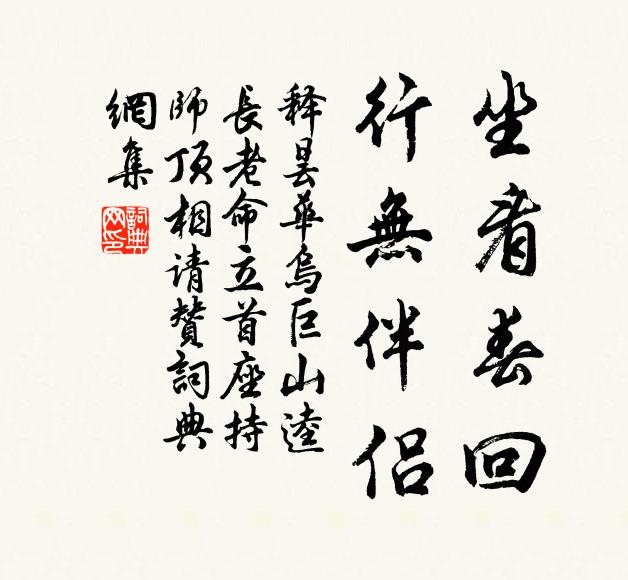 坐看春回
行無伴侶
释曇華烏巨山逵
長老命立首座持
師頂相请贊詞典
網集
詞典網印